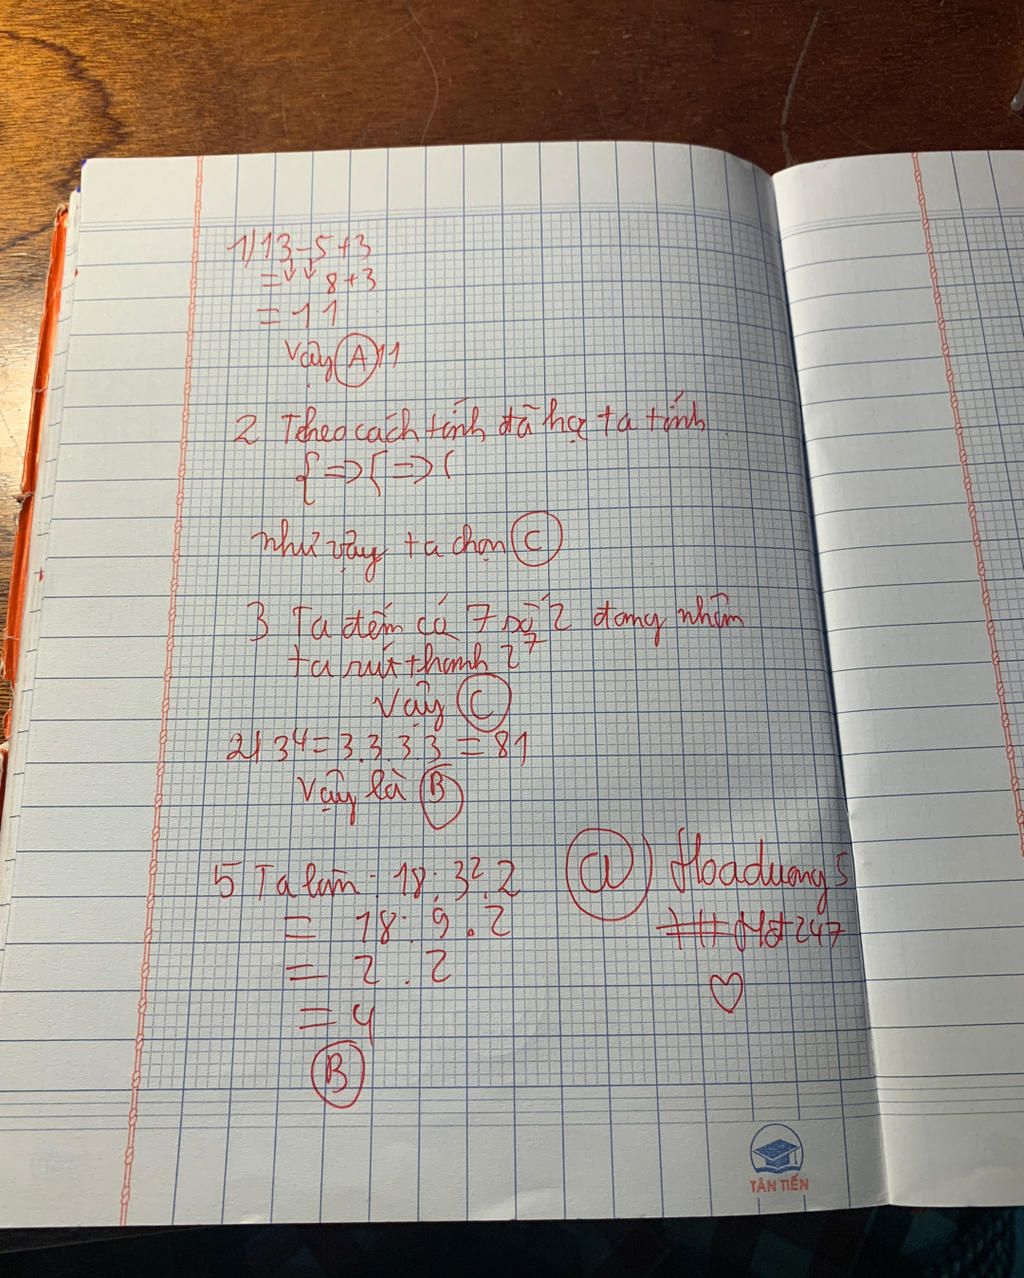 1) 13-5+3
= 8+3
= 11
Vậy A 11
2 Theo cách tính đã học ta tính
{ => [ => (
như vậy ta chọn C
3 Ta đếm có 7 số 2 đang nhân
ta rút thành 2⁷
Vậy C
4 3⁴=3.3.3.3 = 81
Vậy là B
5 Ta làm: 18:3².2
= 18:9.2
= 2.2
= 4
B
@ Hoaduong5
247
TÂN TIẾN